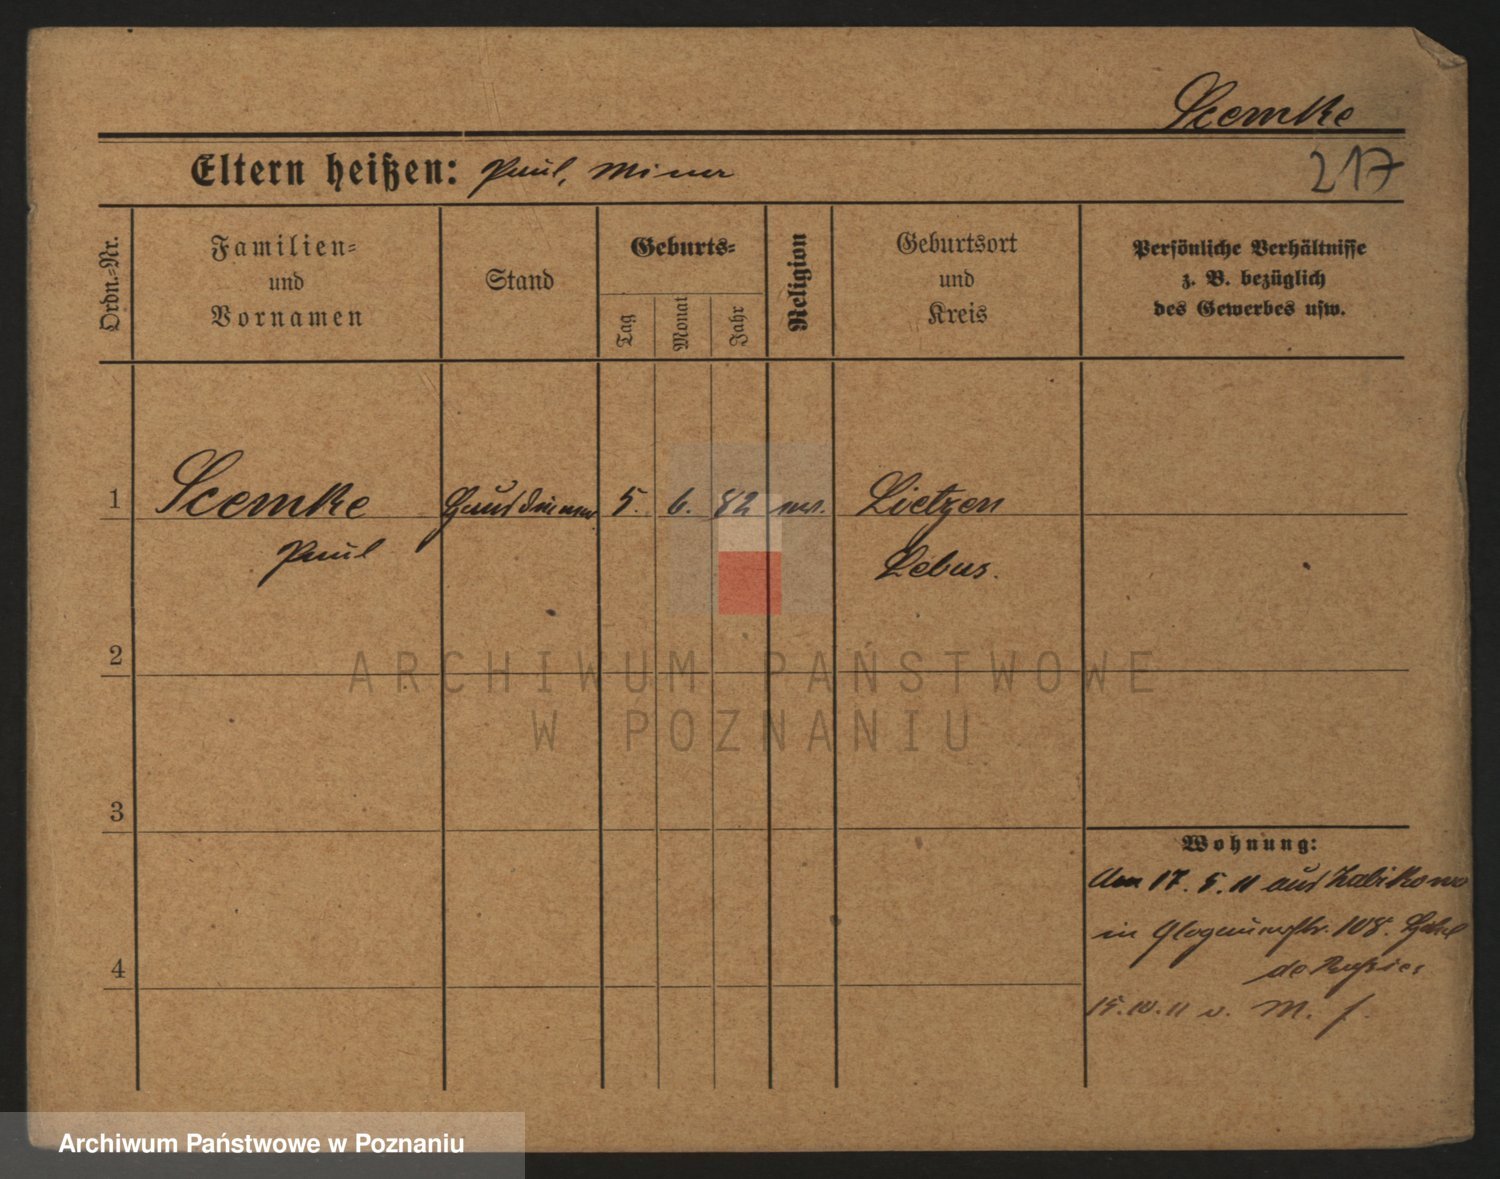 Scemke
Eltern heißen: Paul, Minna
217
Ordn.-Nr.
Familien- und Vornamen
Stand
Geburts-
Tag
Monat
Jahr
Religion
Geburtsort und Kreis
Persönliche Verhältnisse
z. B. bezüglich
des Gewerbes usw.
1 Scemke Hausdiener 5. 6. 82 ev. Lietzen
Paul Lebus.
2
3
Wohnung:
Am 17. 5. 11 aus Zabikowo
in Glogauerstr. 108. Hotel
4
de
15.10.11 v. M. f.
ARCHIWUM PAŃSTWOWE
W POZNANIU
Archiwum Państwowe w Poznaniu